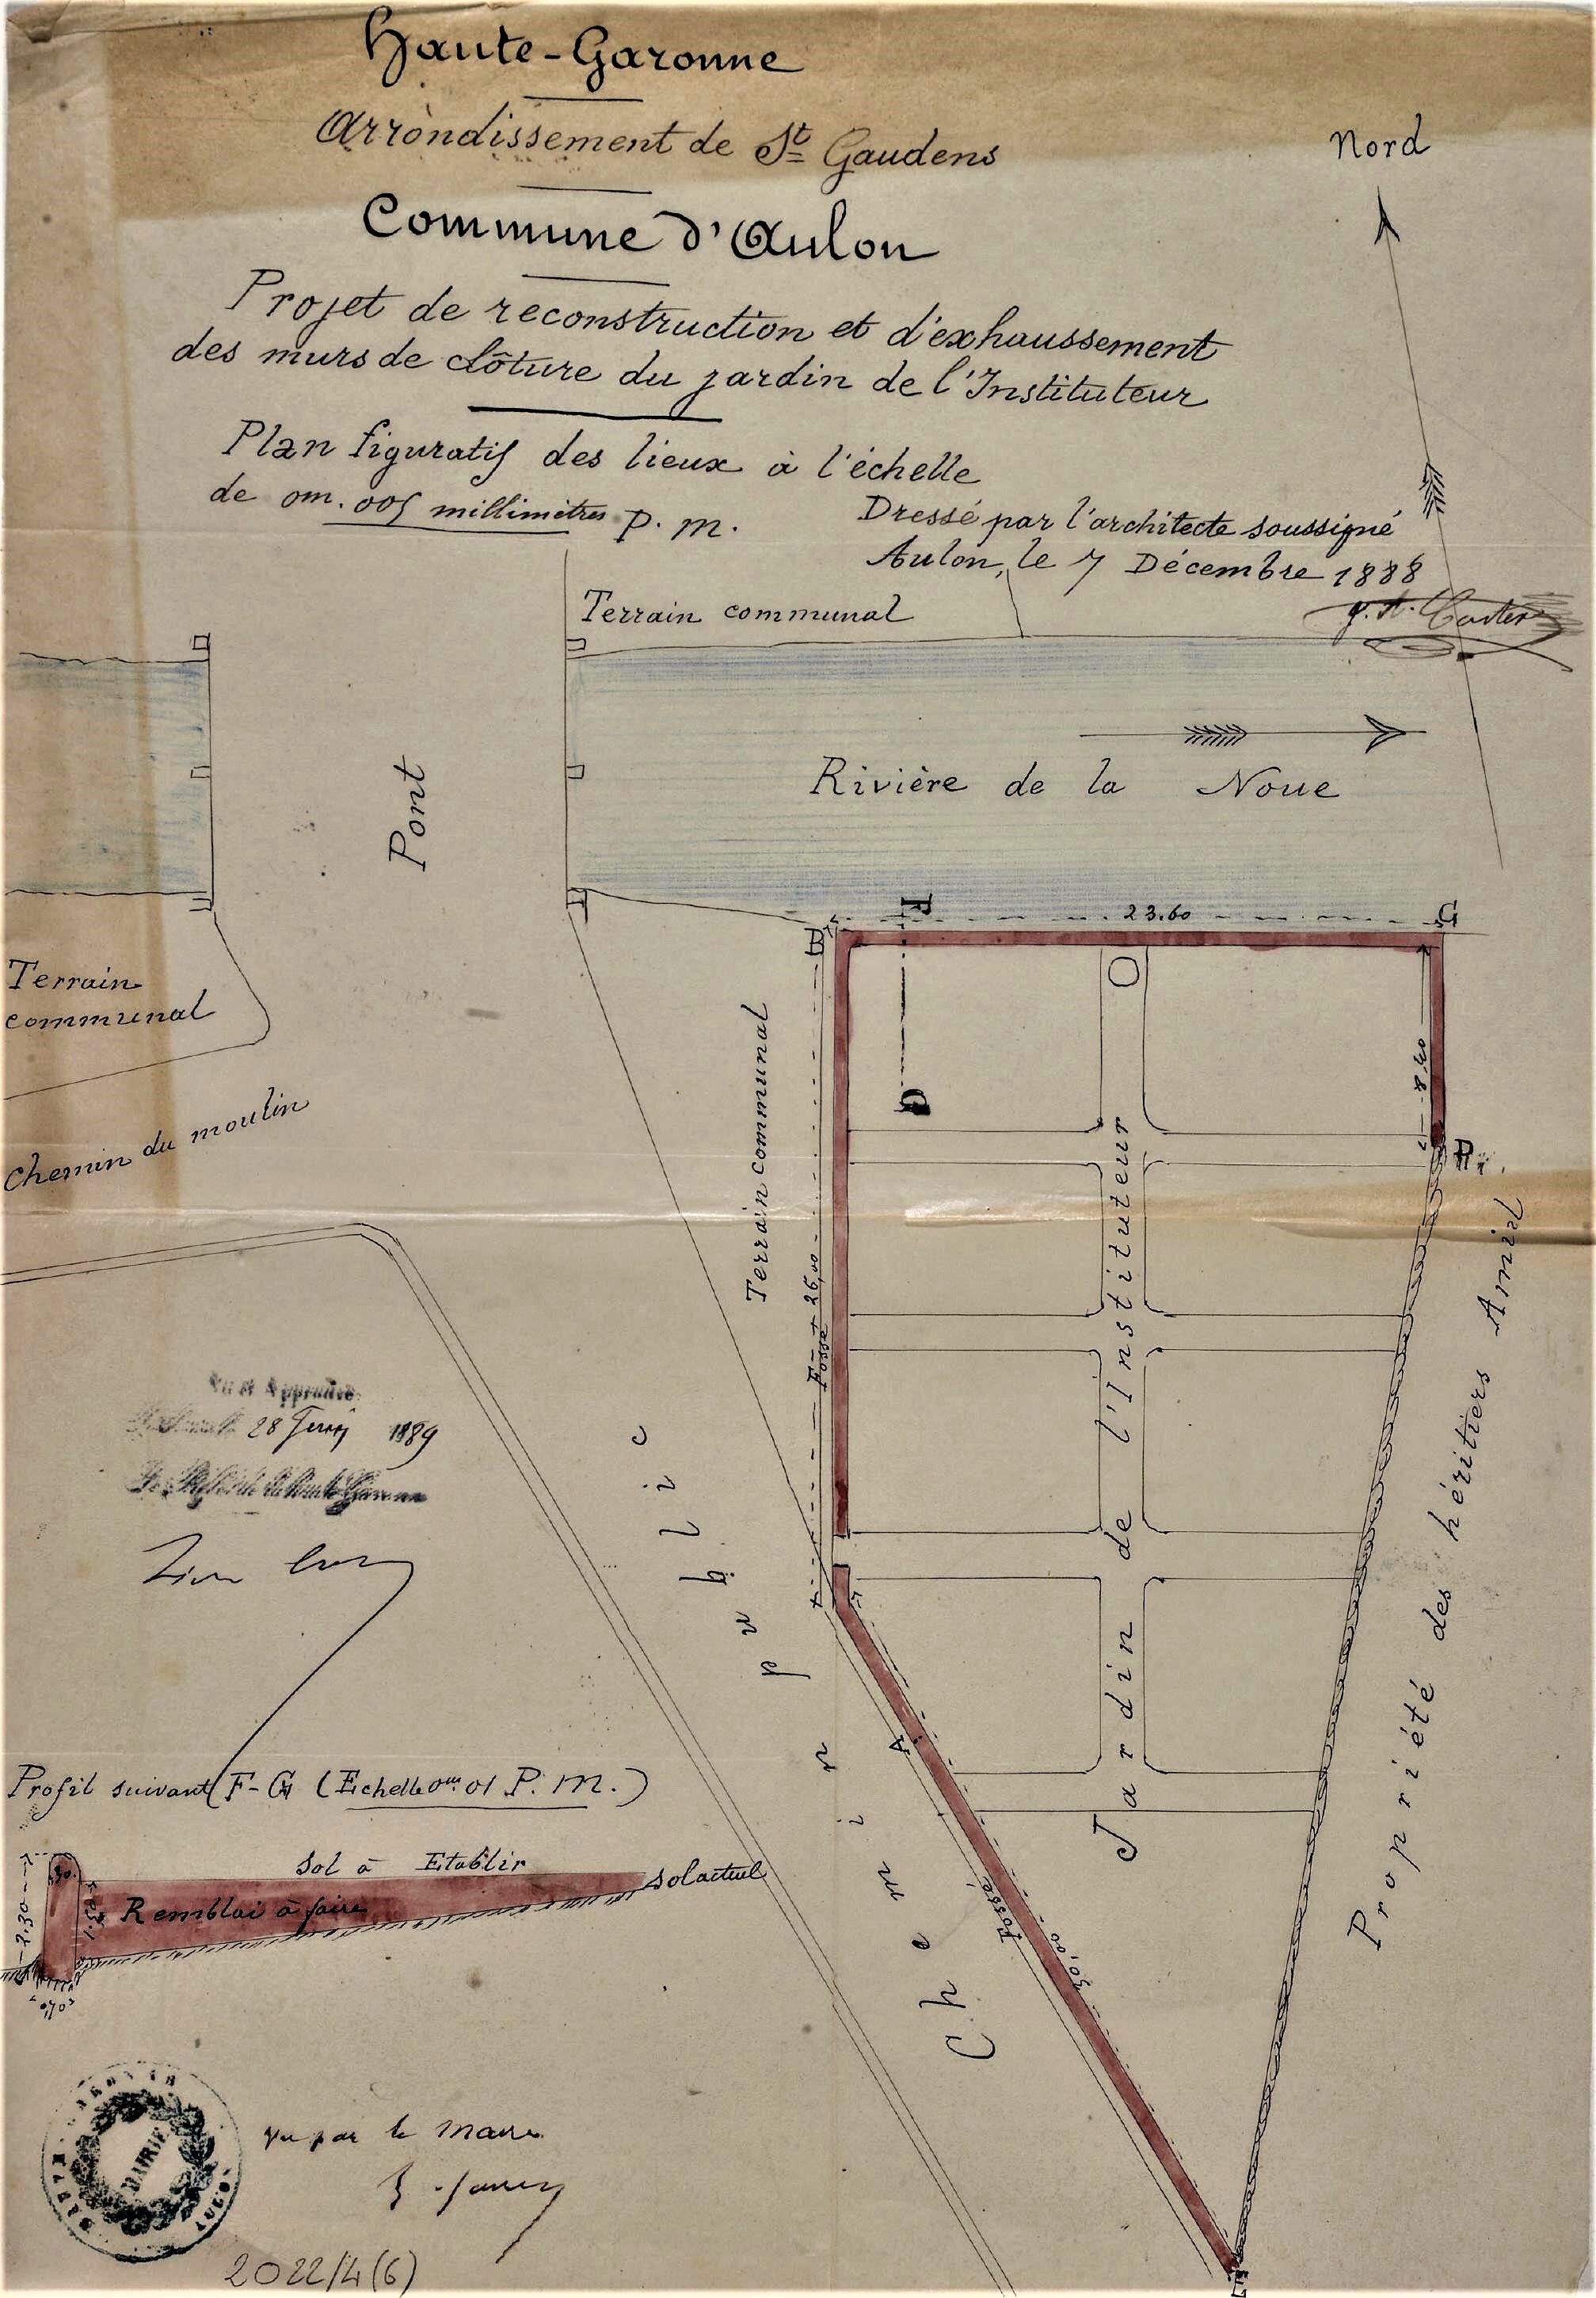 Haute-Garonne
Arrondissement de St Gaudens
Commune d'Aulon
Projet de reconstruction et d'exhaussement
des murs de clôture du jardin de l'Instituteur
Plan figuratif des lieux à l'échelle
de 0m.005 millimètres P. M.
Dressé par l'architecte soussigné
Aulon, le 7 Décembre 1888
Nord
Terrain communal
Pont
Rivière de la Noue
23.60
B
F
C
8,40
D
G
Terrain
communal
Chemin du moulin
Terrain communal
Fossé
26,00
Jardin de l'Instituteur
Propriété des héritiers Amiel
Vu et Approuvé
28 1889
Chemin public
A
Fossé
30,00
E
Profil suivant F-G (Echelle 0m.01 P. M.)
Sol à Etablir
Sol actuel
Remblai à faire
2,30
1,50
0,70
MAIRIE
Vu par le Maire
2022/4(6)